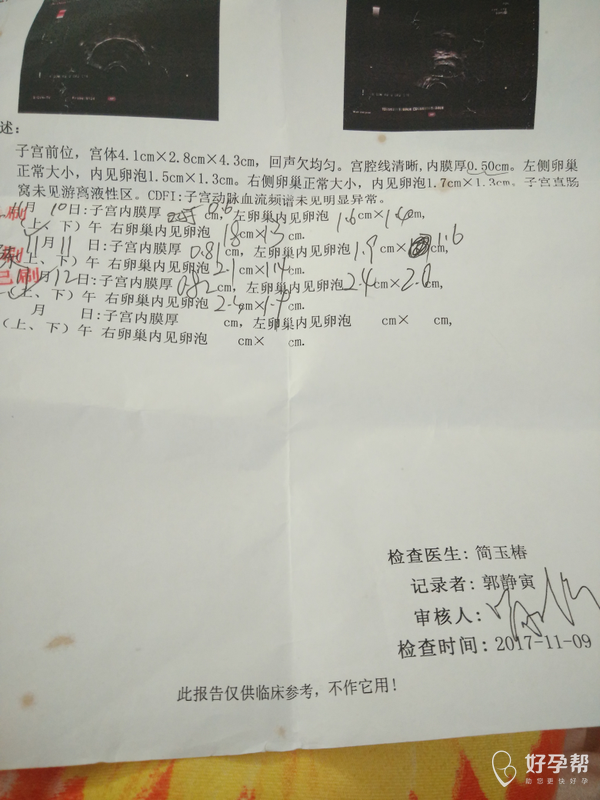 述:
子宫前位，宫体4.1cm×2.8cm×4.3cm，回声欠均匀。宫腔线清晰,内膜厚0.50cm。左侧卵巢
正常大小，内见卵泡1.5cm×1.3cm。右侧卵巢正常大小，内见卵泡1.7cm×1.3cm。子宫直肠
窝未见游离液性区。CDFI:子宫动脉血流频谱未见明显异常。
11月 10日:子宫内膜厚 0.6 cm，左卵巢内见卵泡 1.6 cm×1.4cm,
(上、下）午 右卵巢内见卵泡 1.8cm×1.3cm.
11月 11 日:子宫内膜厚 0.81cm，左卵巢内见卵泡 1.9 cm× 1.6cm,
(上、下）午 右卵巢内见卵泡 2.1cm×1.4cm.
已刷
月12日:子宫内膜厚 0.82cm，左卵巢内见卵泡2.4cm×2.0cm,
午 右卵巢内见卵泡 cm× cm.
月 日:子宫内膜厚 cm，左卵巢内见卵泡 cm× cm,
（上、下）午 右卵巢内见卵泡 cm× cm.
检查医生: 简玉椿
记录者: 郭静寅
审核人:
检查时间: 2017-11-09
此报告仅供临床参考，不作它用！
好孕帮
助您更快好孕